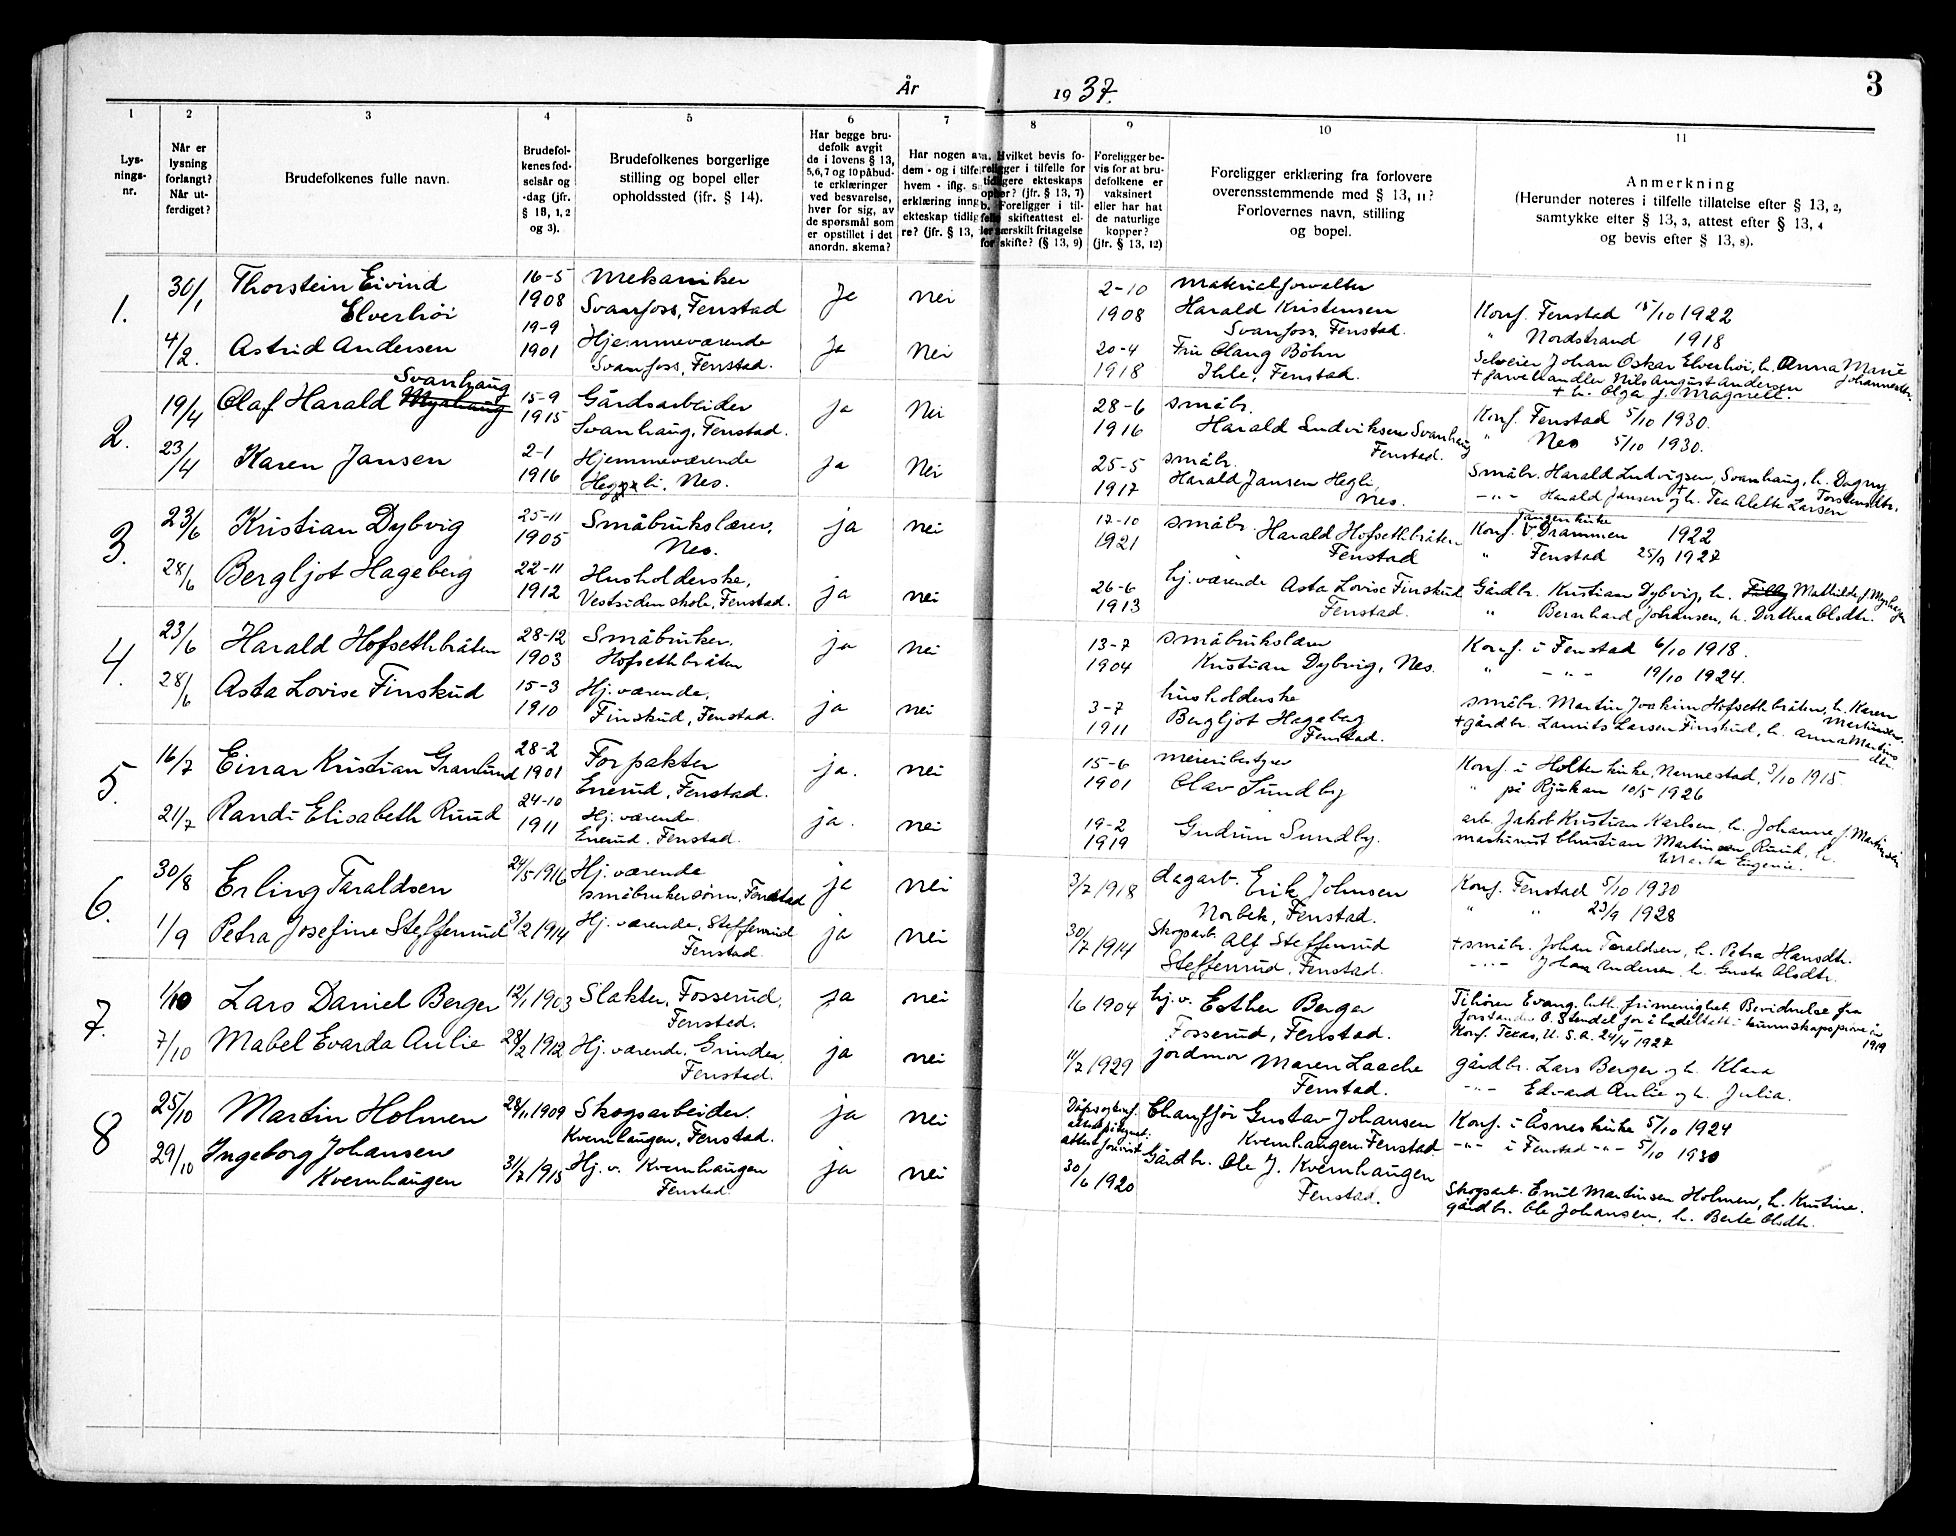 3
År 1937.
1 2 3 4 5 6 7 8 9 10 11
Lys-
nings-
nr.
Når er
lysning
forlangt?
Når ut-
ferdiget?
Brudefolkenes fulle navn.
Brudefol-
kenes fød-
selsår og
-dag (jfr.
§ 18, 1, 2
og 3).
Brudefolkenes borgerlige
stilling og bopel eller
opholdssted (jfr. § 14).
Har begge bru-
defolk avgit
de i lovens § 13,
5,6,7 og 10 påbud-
te erklæringer
ved besvarelse,
hver for sig, av
de spørsmål som
er opstillet i det
anordn. skema?
Har nogen av
dem - og i tilfe
hvem - iflg. s
erklæring inng
ekteskap tidlig
re? (jfr. § 13,
a. Hvilket bevis fo-
religger i tilfelle for
tidligere ekteskaps
ophør? (jfr. § 13, 7)
b. Foreligger i til-
felle skifteattest el-
ler særskilt fritagelse
for skifte? (§ 13, 9)
Foreligger be-
vis for at bru-
defolkene er
vaksinert
eller har hat
de naturlige
kopper?
(jfr. § 13, 12)
Foreligger erklæring fra forlovere
overensstemmende med § 13, 11?
Forlovernes navn, stilling
og bopel.
Anmerkning
(Herunder noteres i tilfelle tillatelse efter § 13, 2,
samtykke efter § 13, 3, attest efter § 13, 4
og bevis efter § 13, 8).
1.
30/1
Thorstein Eivind
Elverhöi
16-5
1908
Mekaniker
Svanfoss, Fenstad
Ja
nei
2-10
1908
Materialforvalter
Harald Kristensen
Svanfoss, Fenstad.
Konf. Fenstad 15/10 1922
" Nordstrand 1918
4/2.
Astrid Andersen
19-9
1901
Hjemmeværende
Svanfoss, Fenstad.
Ja
Nei
20-4
1918
Fru Olaug Böhn
Ihle, Fenstad.
Johan Oskar Elverhöi, h. Anna Marie
Johannesdtr.
+ farvehandler Nils August Andersen
+ h. Olga f. Magnell.
2.
19/4
Svanhaug
Olaf Harald Myrhaug
15-9
1915
Gårdsarbeider
Svanhaug, Fenstad.
ja
Nei
28-6
1916
småbr.
Harald Ludviksen Svanhaug
Fenstad.
Konf. Fenstad 5/10 1930.
" Nes 5/10 1930.
23/4
Karen Jansen
2-1
1916
Hjemmeværende
Hegli, Nes.
ja
Nei
25-5
1917
småbr.
Harald Jansen Hegli,
Nes.
Småbr. Harald Ludvigsen, Svanhaug, h. Dagny
Torstensdtr.
-"- Harald Jansen og h. Tea Alette Larsen
3.
23/6
Kristian Dybvig
25-11
1905
Småbrukslærer,
Nes.
ja
nei
17-10
1921
småbr. Harald Hofsethbråten
Fenstad
Tangen kirke
Konf. v. Drammen 1922
" Fenstad 25/9 1927
28/6
Bergljot Hageberg
22-11
1912
Husholderske,
Vestsiden skole, Fenstad.
ja
nei
26-6
1913
hj. værende Asta Lovise Finskud
Fenstad.
Gårdbr. Kristian Dybvig, h. Mathilde f. Myrhagen
" Bernhard Johansen, h. Dorthea Olsdtr.
4.
23/6
Harald Hofsethbråten
28-12
1903
Småbruker,
Hofsethbråten
ja
nei
13-7
1904
småbrukslærer
Kristian Dybvig, Nes.
Konf. i Fenstad 6/10 1918.
" -"- 19/10 1924.
28/6
Asta Lovise Finskud
15-3
1910
Hj. værende,
Finskud, Fenstad.
ja
nei
3-7
1911
husholderske
Bergljot Hageberg
Fenstad.
småbr. Martin Joakim Hofsethbråten, h. Karen
Martinsdtr.
+ gårdbr. Laurits Larsen Finskud, h. Anna Martins
dtr.
5.
16/7
Einar Kristian Granlund
28-2
1901
Forpakter
Enerud, Fenstad.
ja.
nei
15-6
1901
meieribestyrer
Olav Sundby
Konf. i Holter kirke, Nannestad, 3/10 1915
" på Rjukan 10/5 1926
21/7
Randi Elisabeth Ruud
24-10
1911
Hj. værende.
Enerud, Fenstad.
ja.
nei
19-2
1919
Gudrun Sundby.
arb. Jakob Kristian Karlsen, h. Johanne f. Martinsen
maskinist Christian Martinsen Ruud, h.
Marta Eugenie.
6.
30/8
Erling Taraldsen
24/5 1916
Hj. værende
småbrukersönn, Fenstad
ja
nei
3/7 1918
dagarb. Erik Johnsen
Norbek, Fenstad.
Konf. Fenstad 5/10 1930
" " 23/9 1928
1/9
Petra Josefine Steffenrud
3/2 1914
Hj. værende, Steffenrud
Fenstad.
ja
nei
30/7 1914
Skogsarb. Alf Steffenrud
Steffenrud, Fenstad.
+ småbr. Johan Taraldsen, h. Petra Hansdtr.
-"- Johan Andersen, h. Gusta Olsdtr.
7.
1/10
Lars Daniel Berger
12/1 1903
Slakter, Fosserud,
Fenstad.
ja
nei
1/6 1904
hj.v. Esther Berger
Fosserud, Fenstad.
Tilhörer Evang. luth. frimenighet. Bevidnelse fra
forstander O. Stendal for å ha deltatt i kunnskapspröve år
1919
Konf. Texas, U.S.A. 24/4 1927
7/10
Mabel Evarda Aulie
28/2 1912
Hj. værende, Grinder,
Fenstad.
ja
nei
11/7 1929
jordmor Maren Laache
Fenstad.
gårdbr. Lars Berger og h. Klara
-"- Edvard Aulie og h. Julia.
8
25/10
Martin Holmen
28/11 1909
Skogsarbeider.
Kvernhaugen, Fenstad.
ja
nei
Chauffør Gustav Johansen
Kvernhaugen, Fenstad
Konf. i Åsnes kirke 5/10 1924
-"- i Fenstad -"- 5/10 1930
29/10
Ingeborg Johansen
Kvernhaugen
31/7 1915
Hj. v. Kvernhaugen
Fenstad.
ja
nei
30/6 1920
Gårdbr. Ole J. Kvernhaugen
Fenstad.
Skogsarb. Emil Martinsen Holmen, h. Kristine.
gårdbr. Ole Johansen, h. Berte Olsdtr.